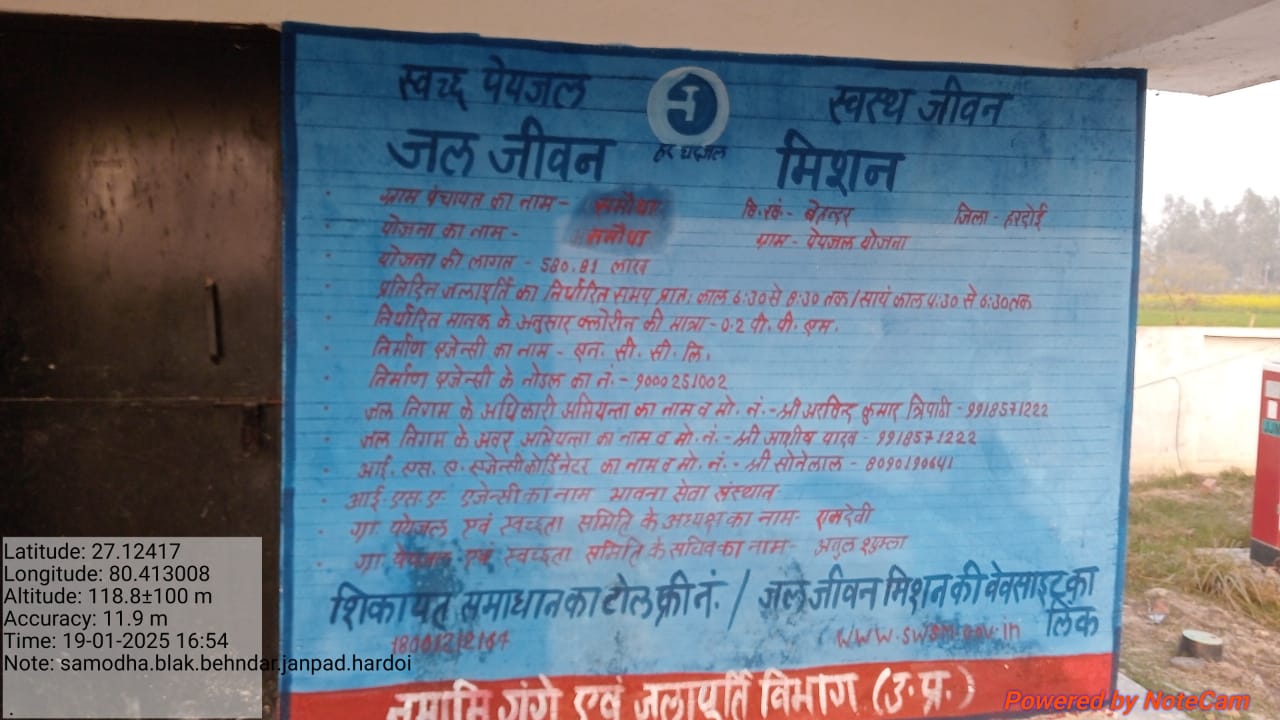 स्वच्छ पेयजल
स्वस्थ जीवन
हर घर जल
जल जीवन मिशन
ग्राम पंचायत का नाम - समौधा वि.खं. - बेहन्दर जिला - हरदोई
योजना का नाम - समौधा ग्राम - पेयजल योजना
योजना की लागत - 580.81 लाख
प्रतिदिन जलापूर्ति का निर्धारित समय प्रातः काल 6:30 से 8:30 तक / सायं काल 4:30 से 6:30 तक
निर्धारित मानक के अनुसार क्लोरीन की मात्रा - 0.2 पी. पी. एम.
निर्माण एजेन्सी का नाम - एन. सी. सी. लि.
निर्माण एजेन्सी के नोडल का नं. - 9000251002
जल निगम के अधिकारी अभियन्ता का नाम व मो. नं. - श्री अरविन्द कुमार त्रिपाठी - 9918571222
जल निगम के अवर अभियन्ता का नाम व मो. नं. - श्री आशीष यादव - 9918571222
आई. एस. ए. एजेन्सी कोर्डिनेटर का नाम व मो. नं. - श्री सोनेलाल - 8090190641
आई. एस. ए. एजेन्सी का नाम भावना सेवा संस्थान
ग्रा. पेयजल एवं स्वच्छता समिति के अध्यक्ष का नाम - रामदेवी
ग्रा. पेयजल एवं स्वच्छता समिति के सचिव का नाम - अतुल शुक्ला
शिकायत समाधान का टोल फ्री नं. / जल जीवन मिशन की वेबसाइट का लिंक
www.swsm.gov.in
नमामि गंगे एवं जलापूर्ति विभाग (उ.प्र.)
Latitude: 27.12417
Longitude: 80.413008
Altitude: 118.8±100 m
Accuracy: 11.9 m
Time: 19-01-2025 16:54
Note: samodha.blak.behndar.janpad.hardoi
Powered by NoteCam